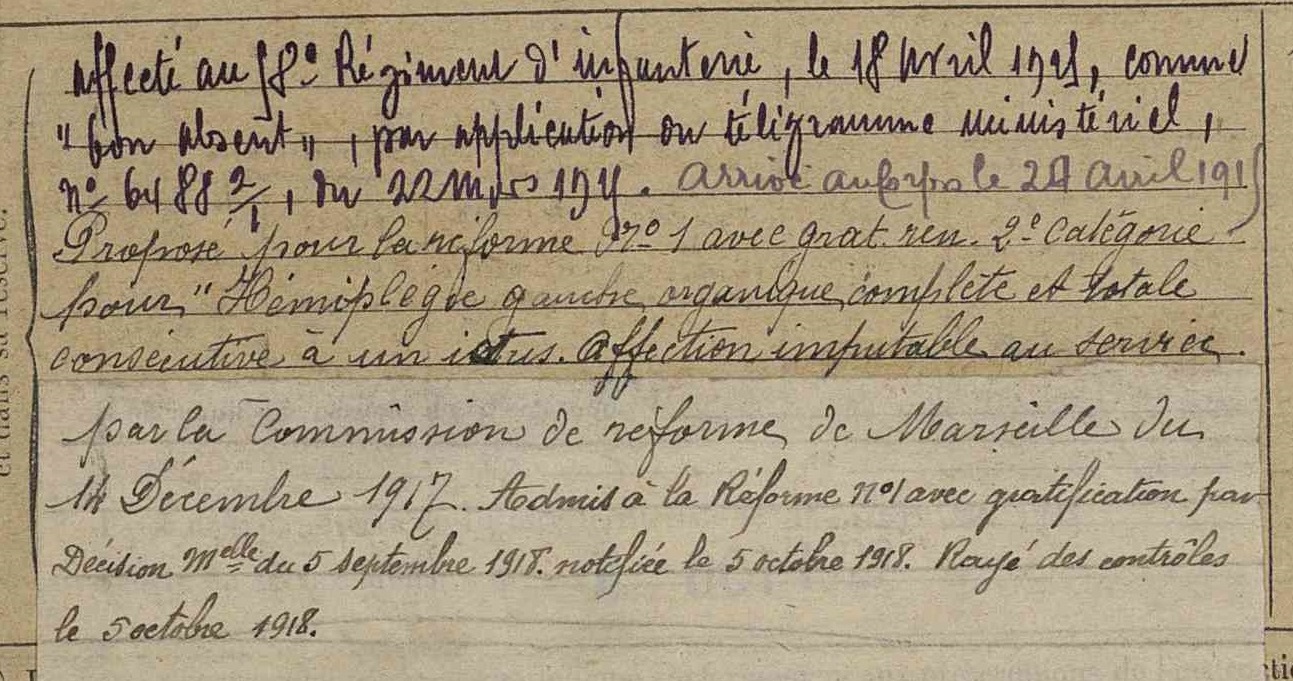 affecté au 58e Régiment d'infanterie, le 18 Avril 1915, comme
"bon absent", par application du téligramme ministériel,
no 6488 2/1, du 22 Mars 1915. arrivé au corps le 24 avril 1915
Proposé pour la réforme No 1 avec grat. ren. 2e Catégorie
pour "Hémiplégie gauche organique complète et totale
consécutive à un ictus. Affection imputable au service.
par la Commission de réforme de Marseille du
14 Décembre 1917. Admis à la Réforme no 1 avec gratification par
Décision Melle du 5 septembre 1918. notifiée le 5 octobre 1918. Rayé des contrôles
le 5 octobre 1918.
et dans sa réserve.